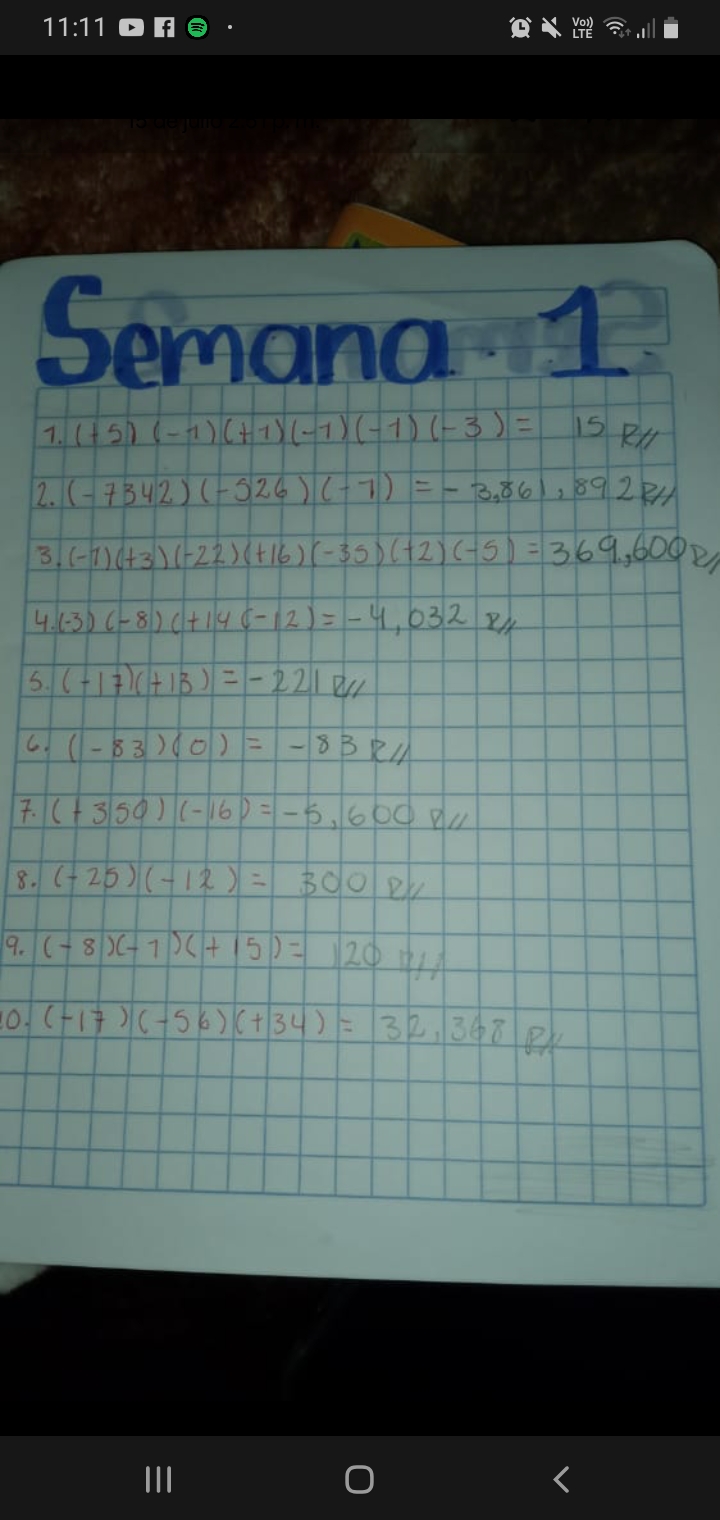 11:11
Vo))
LTE
Semana 1
1. (+5) (-1)(+1)(-1)(-1)(-3) = 15 R//
2. (-7342)(-526)(-1) = - 3,861,892 R//
3. (-1)(+3)(-22)(+16)(-35)(+2)(-5) = 369,600 R//
4. (-3) (-8) (+14 (-12) = -4,032 R//
5. (-17)(+13) = -221 R//
6. (-83)(0) = -83 R//
7. (+350) (-16) = -5,600 R//
8. (-25)(-12) = 300 R//
9. (-8)(-1)(+15) = 120 R//
10. (-17)(-56)(+34) = 32,368 R//